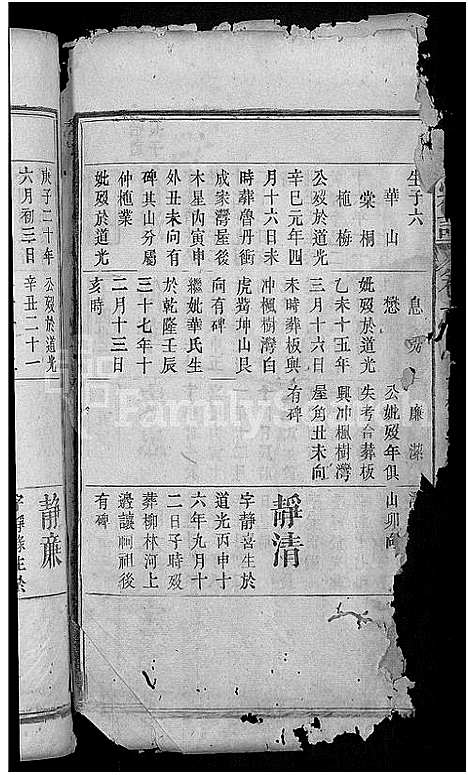 生子六
華山
棠桐
柂梅
公歿於道光
辛巳元年四
月十六日未
時葬魯丹衝
成家灣屋後
木星內寅申
外丑未向有
碑其山分屬
仲柂業
妣歿於道光
懋
妣歿於道光
乙未十五年
三月十六日
未時葬板興
冲楓樹灣白
虎觜坤山艮
向有碑
繼妣華氏生
於乾隆壬辰
三十七年十
二月十三日
亥時
公妣歿年俱
失考合葬板
興冲楓樹灣
屋角丑未向
有碑
山卯向
靜清
字靜喜生於
道光丙申十
六年九月十
二日子時歿
葬柳林河上
邊讓祠祖後
有碑
公歿於道光
辛丑二十一
庚子二十年
六月初三日
靜廉
FamilyS